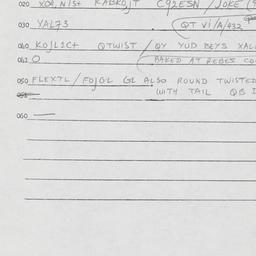 020 KABKOJT C92ESN / JOKE
030 YAL73 (QT VI/A/432
040 KOJLSC+ QTWIST / QY YUD BEYS XAL
041 O (BAKED AT REBES CO
050 FLEXTL / FOJGL GL ALSO ROUND TWISTED
WITH TAIL QB I
060 —